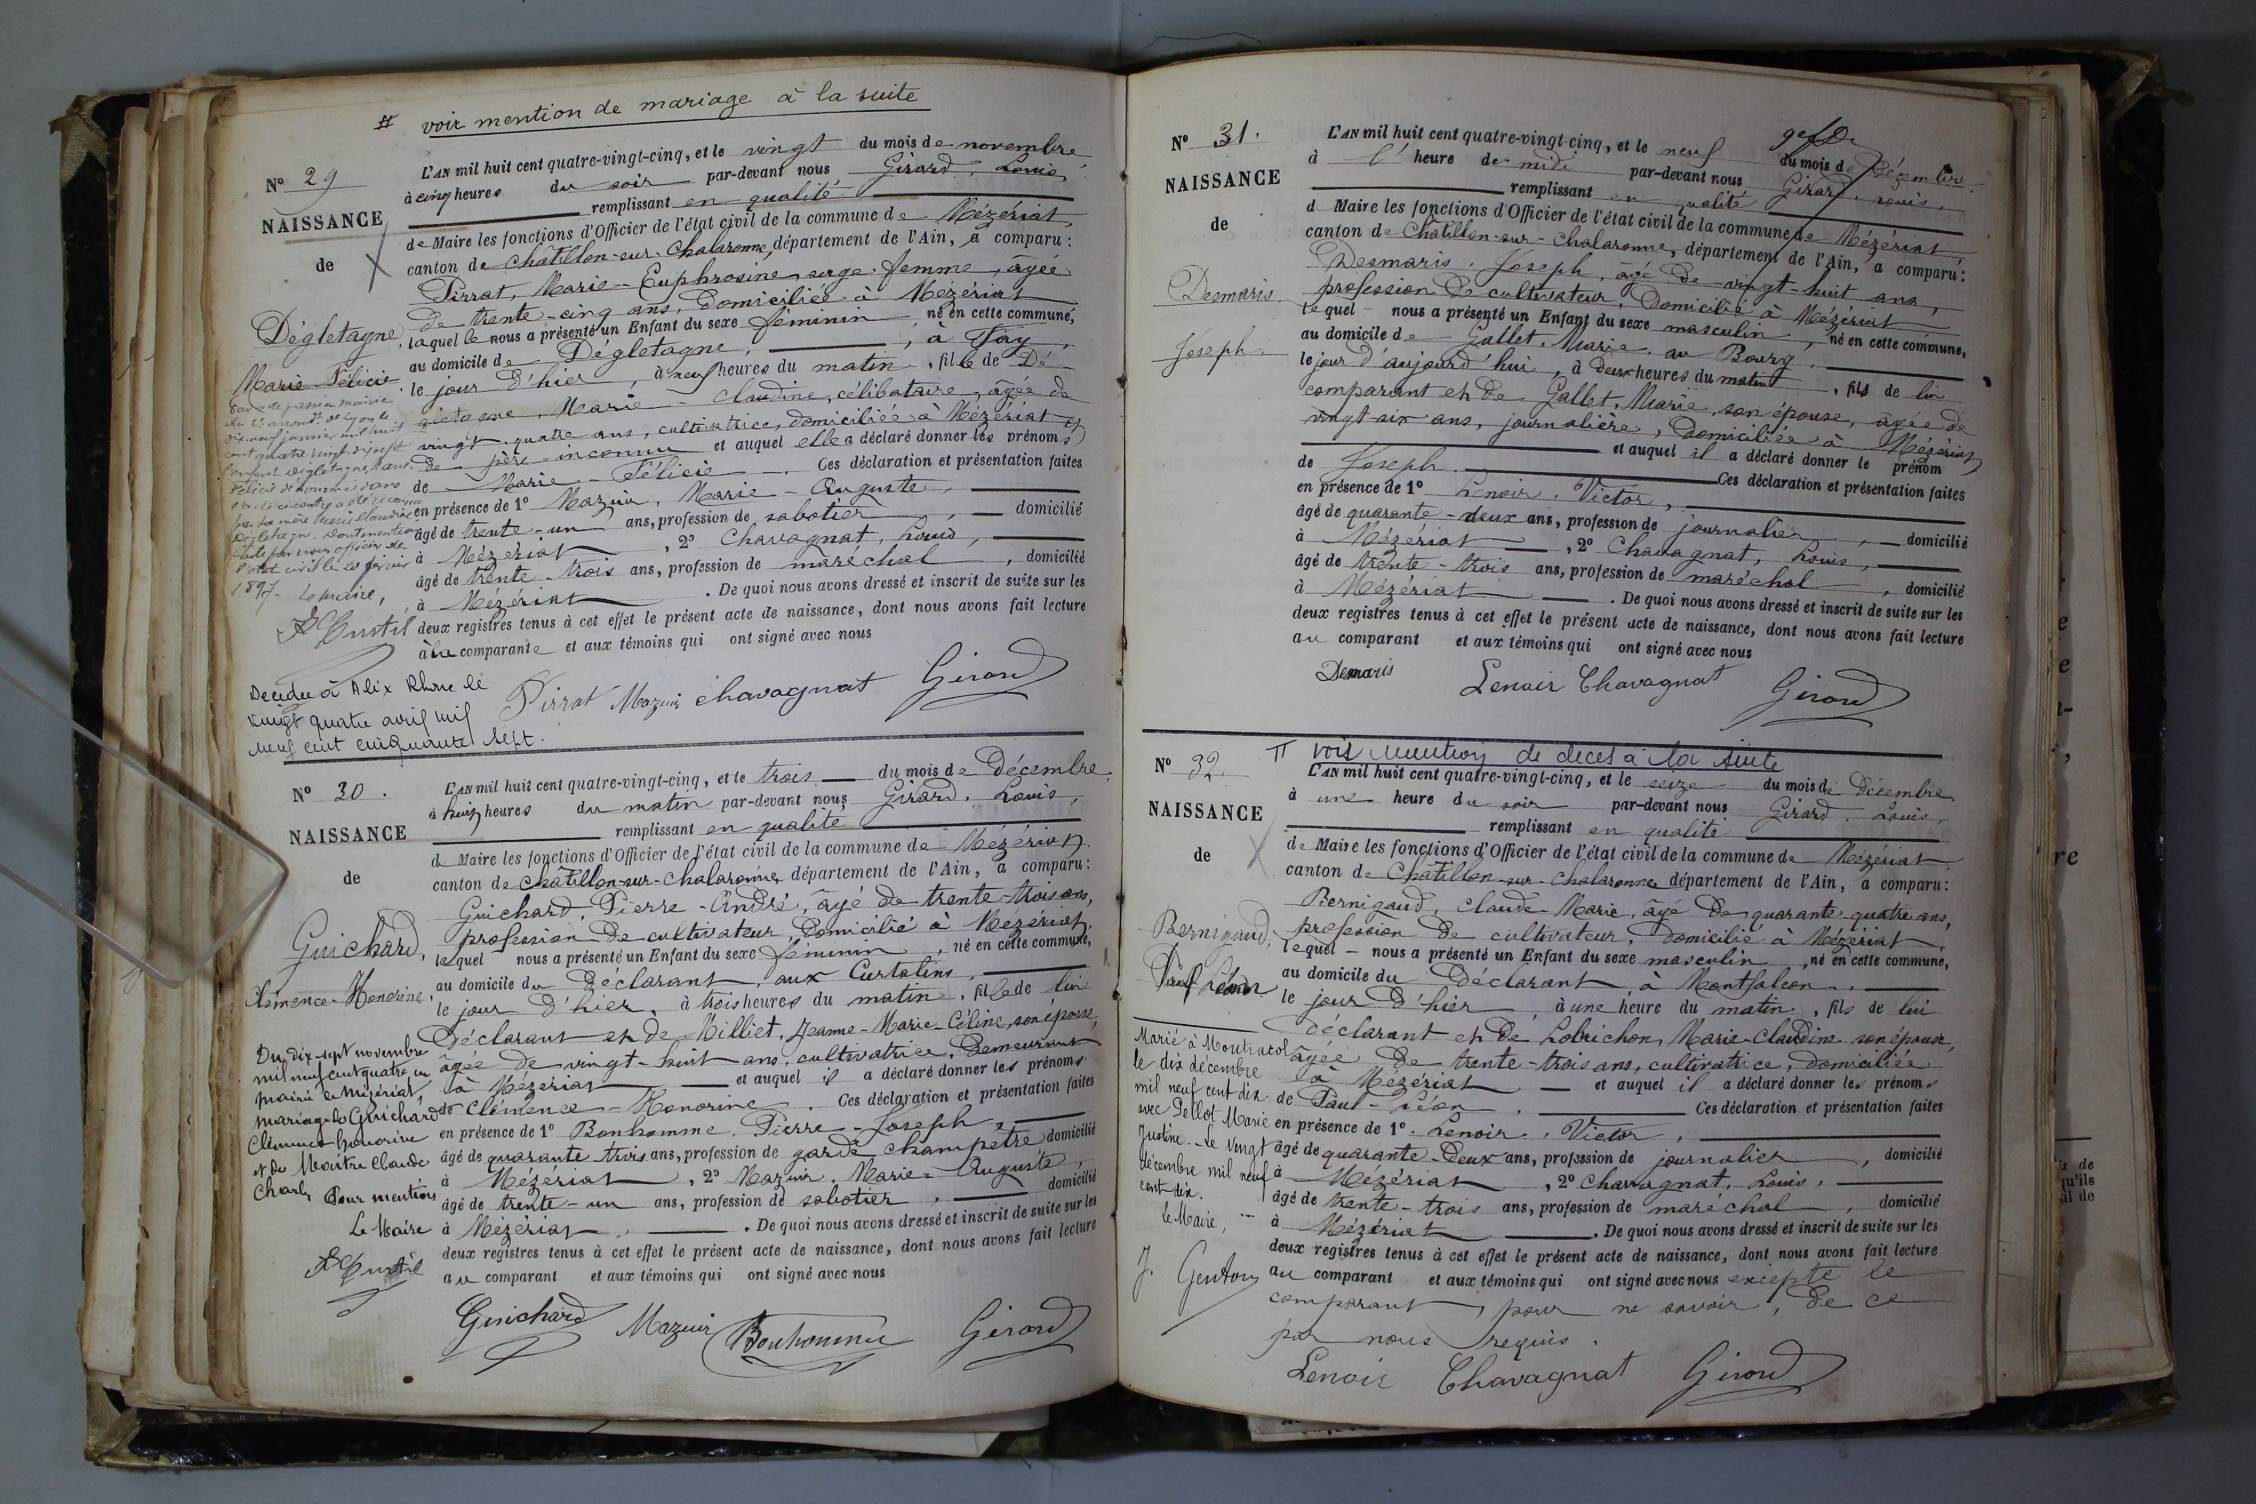 # voir mention de mariage à la suite
N° 29
NAISSANCE
de
Dégletagne,
Marie-Félicie
L'AN mil huit cent quatre-vingt-cinq, et le vingt du mois de novembre
à cinq heures du soir par-devant nous Girard, Louis,
remplissant en qualité
de Maire les fonctions d'Officier de l'état civil de la commune de Mézériat,
canton de Châtillon-sur-Chalaronne, département de l'Ain, a comparu :
Pirrat, Marie-Euphrosine, sage-femme, âgée
de trente-cinq ans, domiciliée à Mézériat
laquelle nous a présenté un Enfant du sexe féminin, né en cette commune,
au domicile de Dégletagne, à Fay,
le jour d'hier, à neuf heures du matin, fille de Dé-
gletagne, Marie-Claudine, célibataire, âgée de
vingt-quatre ans, cultivatrice, domiciliée à Mézériat et
de père inconnu et auquel elle a déclaré donner les prénoms
de Marie-Félicie. Ces déclaration et présentation faites
en présence de 1° Mazuir, Marie-Auguste,
âgé de trente-un ans, profession de sabotier, domicilié
à Mézériat, 2° Chavagnat, Louis,
âgé de trente-trois ans, profession de maréchal, domicilié
à Mézériat. De quoi nous avons dressé et inscrit de suite sur les
deux registres tenus à cet effet le présent acte de naissance, dont nous avons fait lecture
à la comparante et aux témoins qui ont signé avec nous
Pirrat Mazuir Chavagnat Girard
Par acte passé en mairie
du 2e arrondt. de Lyon le
dix-neuf janvier mil huit
cent quatre-vingt-dix-sept
l'enfant Dégletagne, Marie
Félicie dénommée dans
l'acte ci-contre a été reconnue
par sa mère Marie Claudine
Dégletagne. Dont mention
faite par nous officier de
l'état civil le 20 février
1897. Le maire,
Décédée à Alix Rhône le
vingt quatre avril mil
neuf cent cinquante sept.
N° 30.
NAISSANCE
de
Guichard,
Clémence-Honorine,
L'AN mil huit cent quatre-vingt-cinq, et le trois du mois de Décembre,
à huit heures du matin par-devant nous Girard, Louis,
remplissant en qualité
de Maire les fonctions d'Officier de l'état civil de la commune de Mézériat,
canton de Châtillon-sur-Chalaronne, département de l'Ain, a comparu :
Guichard, Pierre-André, âgé de trente-trois ans,
profession de cultivateur, domicilié à Mézériat,
lequel nous a présenté un Enfant du sexe féminin, né en cette commune,
au domicile du déclarant, aux Curtelins,
le jour d'hier, à trois heures du matin, fille de lui
déclarant et de Milliet, Jeanne-Marie-Céline, son épouse,
âgée de vingt-huit ans, cultivatrice, demeurant
à Mézériat et auquel il a déclaré donner les prénoms
de Clémence-Honorine. Ces déclaration et présentation faites
en présence de 1° Bonhomme, Pierre-Joseph,
âgé de quarante-trois ans, profession de garde champêtre domicilié
à Mézériat, 2° Mazuir, Marie-Auguste,
âgé de trente-un ans, profession de sabotier, domicilié
à Mézériat. De quoi nous avons dressé et inscrit de suite sur les
deux registres tenus à cet effet le présent acte de naissance, dont nous avons fait lecture
au comparant et aux témoins qui ont signé avec nous
Guichard Mazuir Bonhomme Girard
Du dix-sept novembre
mil neuf cent quatre, en
mairie de Mézériat,
mariage de Guichard
Clémence Honorine
et de Maître Claude
Charles Pour mention
Le Maire
N° 31.
NAISSANCE
de
Desmaris
Joseph
L'AN mil huit cent quatre-vingt-cinq, et le neuf du mois de Décembre
à l' heure de midi par-devant nous Girard, Louis,
remplissant en qualité
de Maire les fonctions d'Officier de l'état civil de la commune de Mézériat,
canton de Châtillon-sur-Chalaronne, département de l'Ain, a comparu :
Desmaris, Joseph, âgé de vingt-huit ans,
profession de cultivateur, domicilié à Mézériat
lequel nous a présenté un Enfant du sexe masculin, né en cette commune,
au domicile de Gallet, Marie, au Bourg,
le jour d'aujourd'hui, à deux heures du matin, fils de lui
comparant et de Gallet, Marie, son épouse, âgée de
vingt-six ans, journalière, domiciliée à Mézériat
et auquel il a déclaré donner le prénom
de Joseph. Ces déclaration et présentation faites
en présence de 1° Lenoir, Victor,
âgé de quarante-deux ans, profession de journalier, domicilié
à Mézériat, 2° Chavagnat, Louis,
âgé de trente-trois ans, profession de maréchal, domicilié
à Mézériat. De quoi nous avons dressé et inscrit de suite sur les
deux registres tenus à cet effet le présent acte de naissance, dont nous avons fait lecture
au comparant et aux témoins qui ont signé avec nous
Demaris Lenoir Chavagnat Girard
voir mention de décès à la suite
N° 32.
NAISSANCE
de
Bernigaud,
Paul Léon
L'AN mil huit cent quatre-vingt-cinq, et le seize du mois de Décembre,
à une heure du soir par-devant nous Girard, Louis,
remplissant en qualité
de Maire les fonctions d'Officier de l'état civil de la commune de Mézériat,
canton de Châtillon-sur-Chalaronne, département de l'Ain, a comparu :
Bernigaud, Claude-Marie, âgé de quarante-quatre ans,
profession de cultivateur, domicilié à Mézériat,
lequel nous a présenté un Enfant du sexe masculin, né en cette commune,
au domicile du déclarant, à Montfalcon,
le jour d'hier, à une heure du matin, fils de lui
déclarant et de Lobrichon, Marie-Claudine son épouse,
âgée de trente-trois ans, cultivatrice, domiciliée
à Mézériat et auquel il a déclaré donner les prénoms
de Paul-Léon. Ces déclaration et présentation faites
en présence de 1° Lenoir, Victor,
âgé de quarante-deux ans, profession de journalier, domicilié
à Mézériat, 2° Chavagnat, Louis,
âgé de trente-trois ans, profession de maréchal, domicilié
à Mézériat. De quoi nous avons dressé et inscrit de suite sur les
deux registres tenus à cet effet le présent acte de naissance, dont nous avons fait lecture
au comparant et aux témoins qui ont signé avec nous excepté le
comparant, pour ne savoir, de ce
par nous requis.
Lenoir Chavagnat Girard
Marié à Montracol
le dix décembre
mil neuf cent dix
avec Pellot Marie
Justine. Le vingt
décembre mil neuf
cent dix.
le Maire,
J. Genton